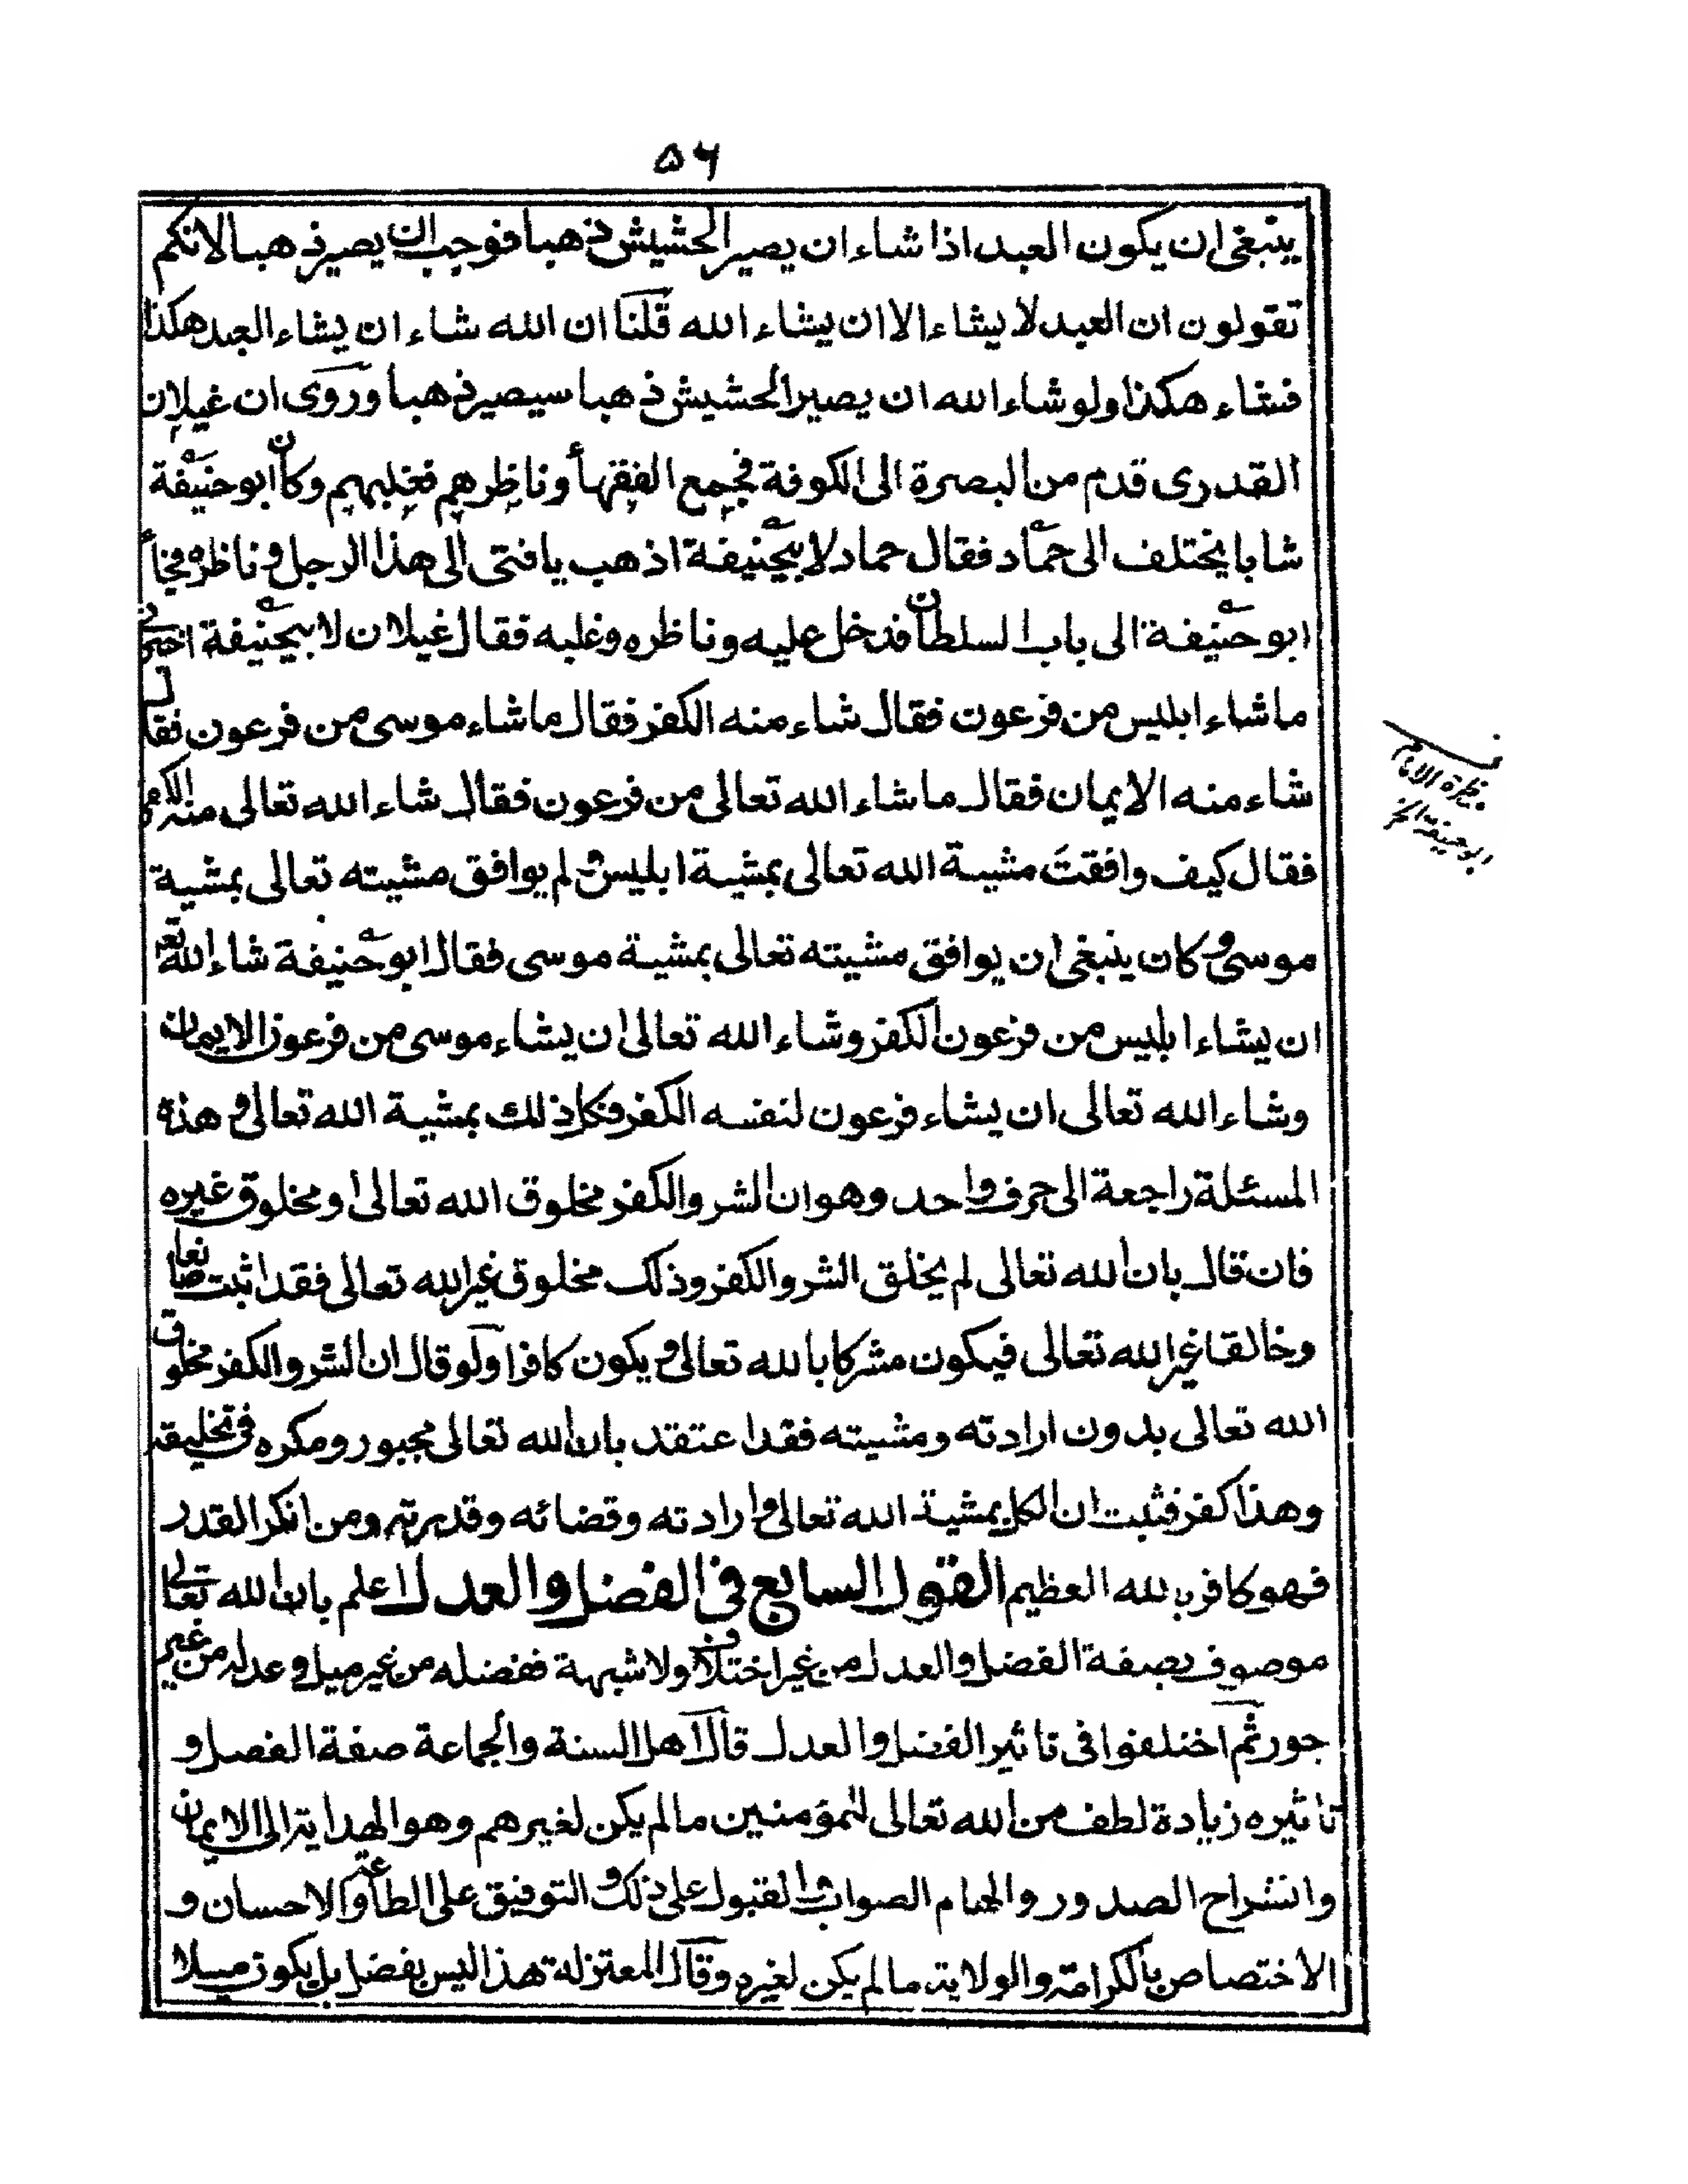 ٥٦
ينبغي ان يكون العبد اذا شاء ان يصير الحشيش ذهبا فوجب ان يصير ذهبا لانكم
تقولون ان العبد لا يشاء الا ان يشاء الله قلنا ان الله شاء ان يشاء العبد هكذا
فشاء هكذا ولو شاء الله ان يصير الحشيش ذهبا سيصير ذهبا وروى ان غيلان
القدرى قدم من البصرة الى الكوفة فجمع الفقهأ وناظرهم فغلبهم وكان ابو حنيفة
شابا يختلف الى حماد فقال حماد لابيحنيفة اذهب يا فتى الى هذا الرجل وناظره فجأ
ابو حنيفة الى باب السلطان فدخل عليه وناظره وغلبه فقال غيلان لابيحنيفة اخبرنى
ما شاء ابليس من فرعون فقال شاء منه الكفر فقال ما شاء موسى من فرعون فقال
شاء منه الايمان فقال ما شاء الله تعالى من فرعون فقال شاء الله تعالى منه الكفر
فقال كيف وافقت مشية الله تعالى بمشية ابليس ولم يوافق مشيته تعالى بمشية
موسى وكان ينبغى ان يوافق مشيته تعالى بمشية موسى فقال ابو حنيفة شاء الله تعا
ان يشاء ابليس من فرعون الكفر وشاء الله تعالى ان يشاء موسى من فرعون الايمان
وشاء الله تعالى ان يشاء فرعون لنفسه الكفر فكل ذلك بمشية الله تعالى وهذه
المسئلة راجعة الى حرف واحد وهو ان الشر والكفر مخلوق الله تعالى او مخلوق غيره
فان قال بان الله تعالى لم يخلق الشر والكفر وذلك مخلوق غير الله تعالى فقد اثبت صانعا
وخالقا غير الله تعالى فيكون مشركا بالله تعالى ويكون كافرا ولو قال ان الشر والكفر مخلوق
الله تعالى بدون ارادته ومشيته فقد اعتقد بان الله تعالى مجبور ومكره فى تخليقه
وهذا كفر فثبت ان الكل بمشية الله تعالى وارادته وقضائه وقدرته ومن انكر القدر
فهو كافر بالله العظيم القول السابع فى الفضل والعدل اعلم بان الله تعالى
موصوف بصفة الفضل والعدل من غير اختلاف ولا شبهة ففضله من غير ميل وعدله من غير
جور ثم اختلفوا فى تاثير الفضل والعدل قال اهل السنة والجماعة صفة الفضل و
تاثيره زيادة لطف من الله تعالى للمؤمنين ما لم يكن لغيرهم وهو الهداية الى الايمان
وانشراح الصدور والهام الصواب والقبول على ذلك والتوفيق على الطاعة والاحسان و
الاختصاص بالكرامة والولاية ما لم يكن لغيره وقال المعتزلة هذا ليس بفضل بل يكون ميلا